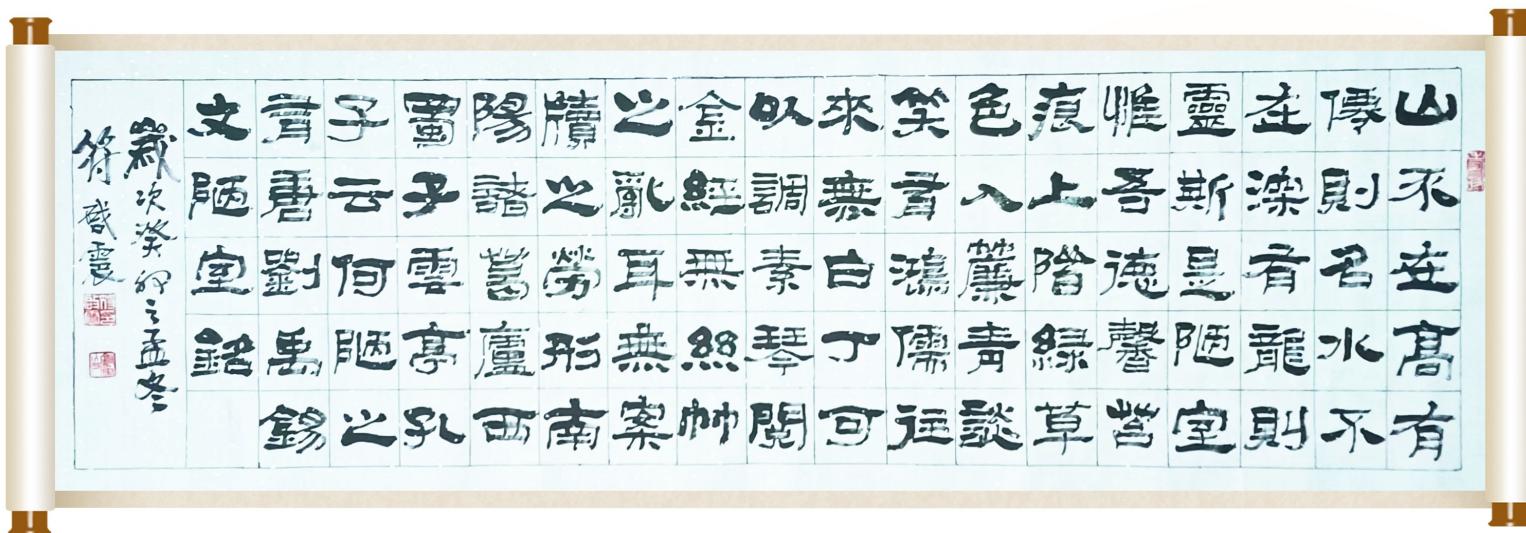 山不在高有
僊則名水不
在深有龍則
靈斯是陋室
惟吾德馨苔
痕上階綠草
色入簾青談
笑有鴻儒往
來無白丁可
以調素琴閱
金經無絲竹
之亂耳無案
牘之勞形南
陽諸葛廬西
蜀子雲亭孔
子云何陋之
有唐劉禹錫
文陋室銘
歲次癸卯之孟冬
符啟震